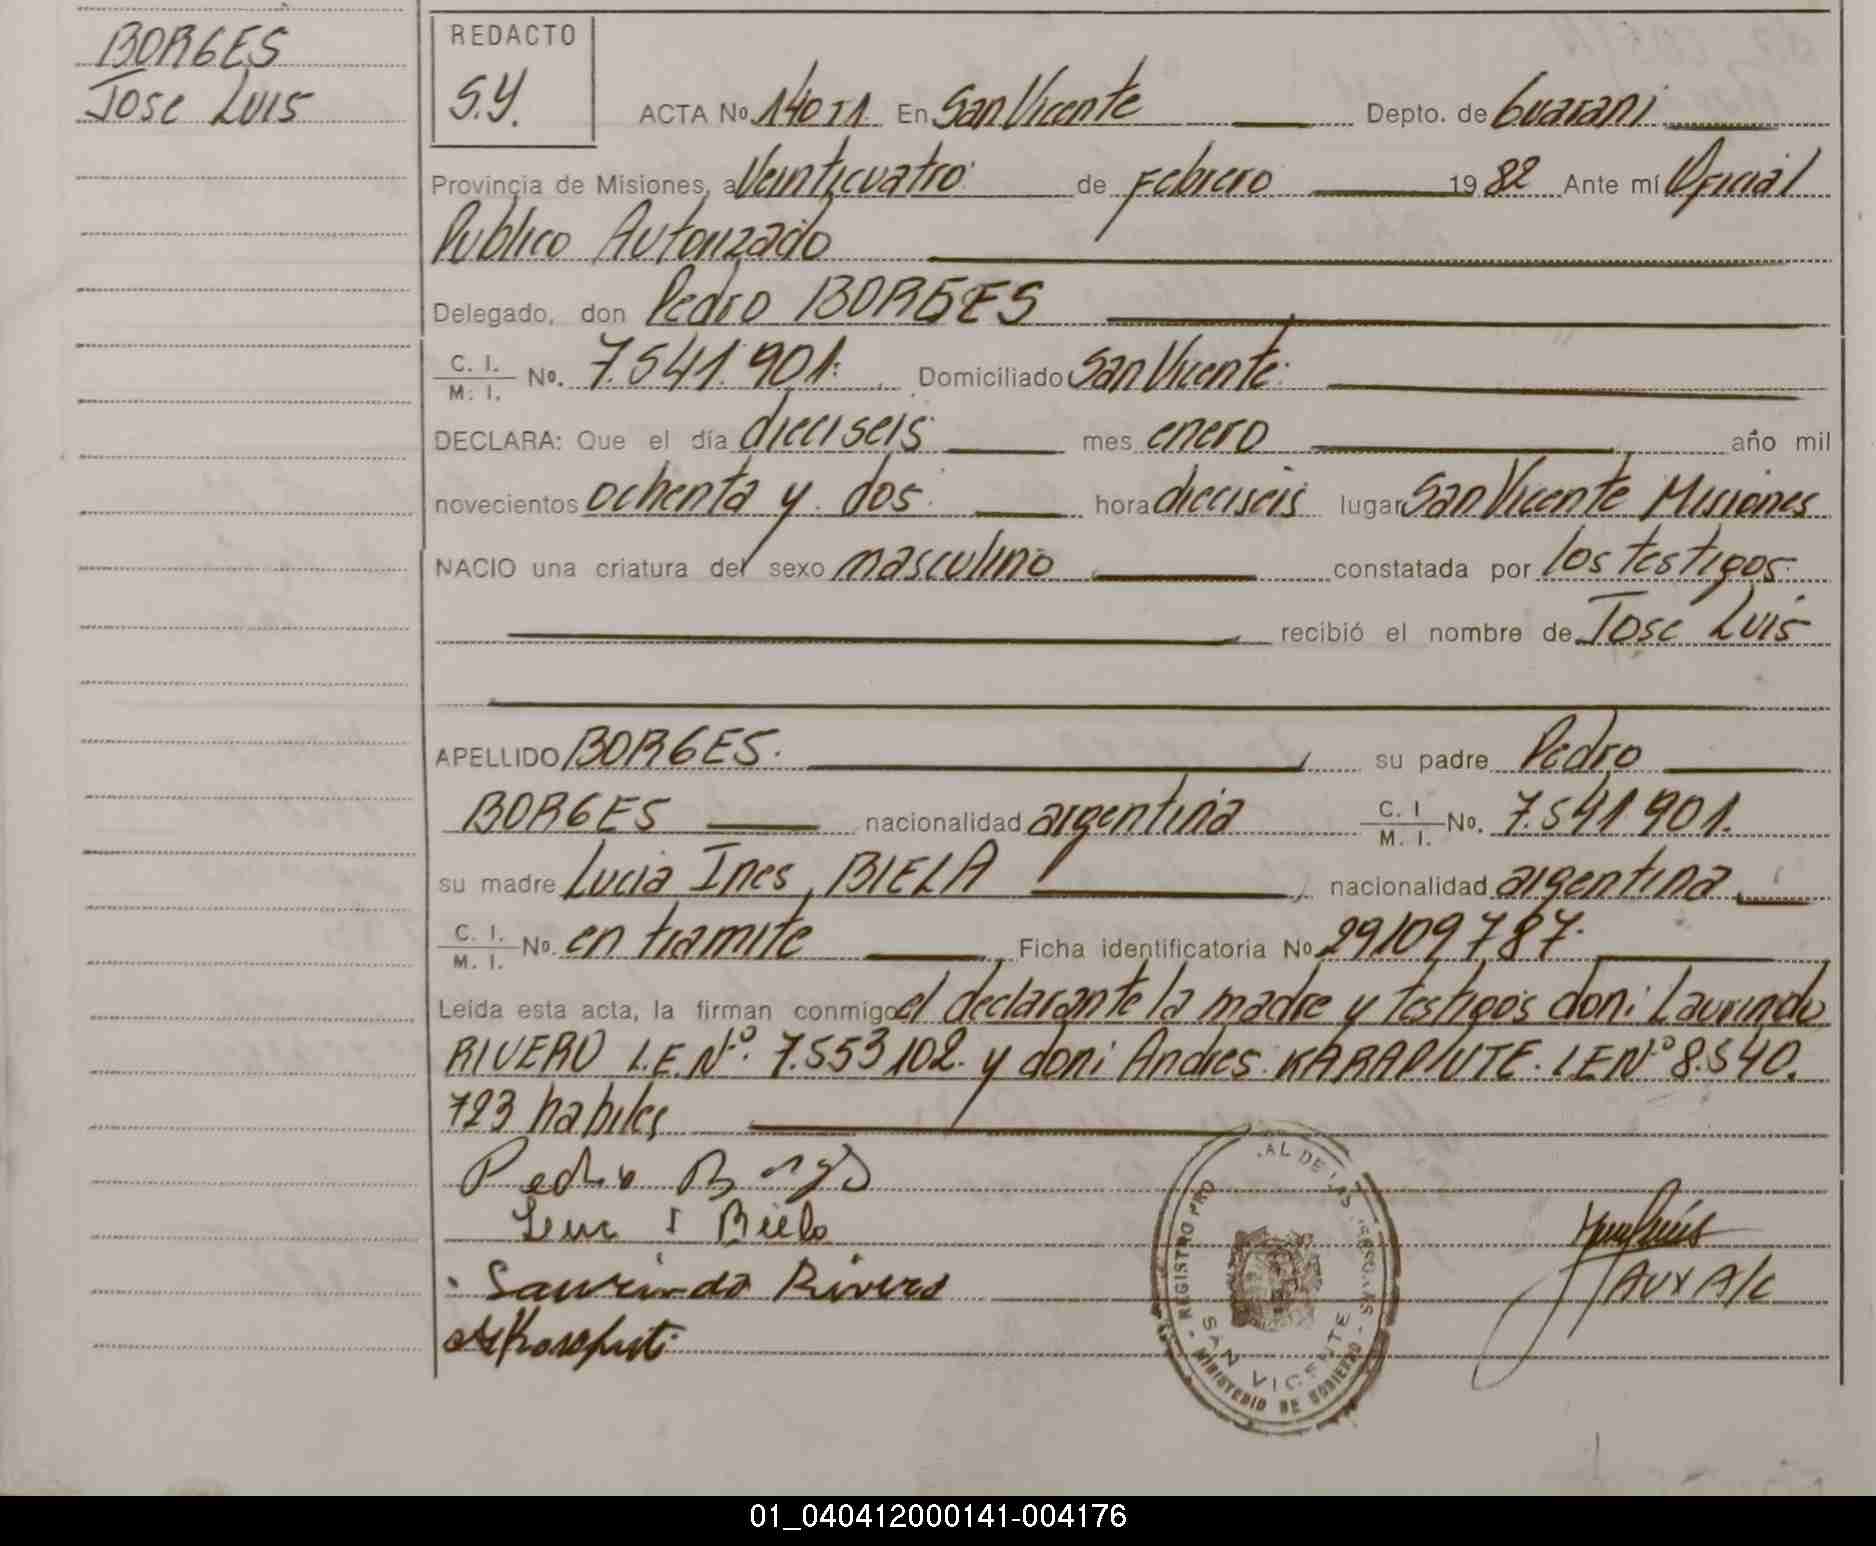 BORGES
Jose Luis
REDACTO
S.Y.
ACTA No 140 T1. En San Vicente Depto. de Guarani
Provincia de Misiones, a Veinticuatro de Febrero 19 82 Ante mí Oficial
Publico Autorizado
Delegado, don Pedro BORGES
C. I. / M. I. No. 7.541.901. Domiciliado San Vicente.
DECLARA: Que el día dieciseis mes enero año mil
novecientos ochenta y dos. hora dieciseis lugar San Vicente Misiones
NACIO una criatura del sexo masculino constatada por los testigos.
recibió el nombre de Jose Luis
APELLIDO BORGES. su padre Pedro
BORGES nacionalidad argentina C. I / M. I. No. 7.541.901.
su madre Lucia Ines BIELA nacionalidad argentina
C. I. / M. I. No. en tramite Ficha identificatoria No 29109787.
Leída esta acta, la firman conmigo el declarante la madre y testigos don: Laurindo
RIVERO L.E.Nº. 7.553102. y don: Andres KARAPIUTE. LENº 8.540.
723 habiles
Pedro Borges
Biela
Laurindo Rivero
AUX A/C
REGISTRO PRO AL DE LAS PERSONAS
SAN VICENTE
MINISTERIO DE GOBIERNO
01_040412000141-004176